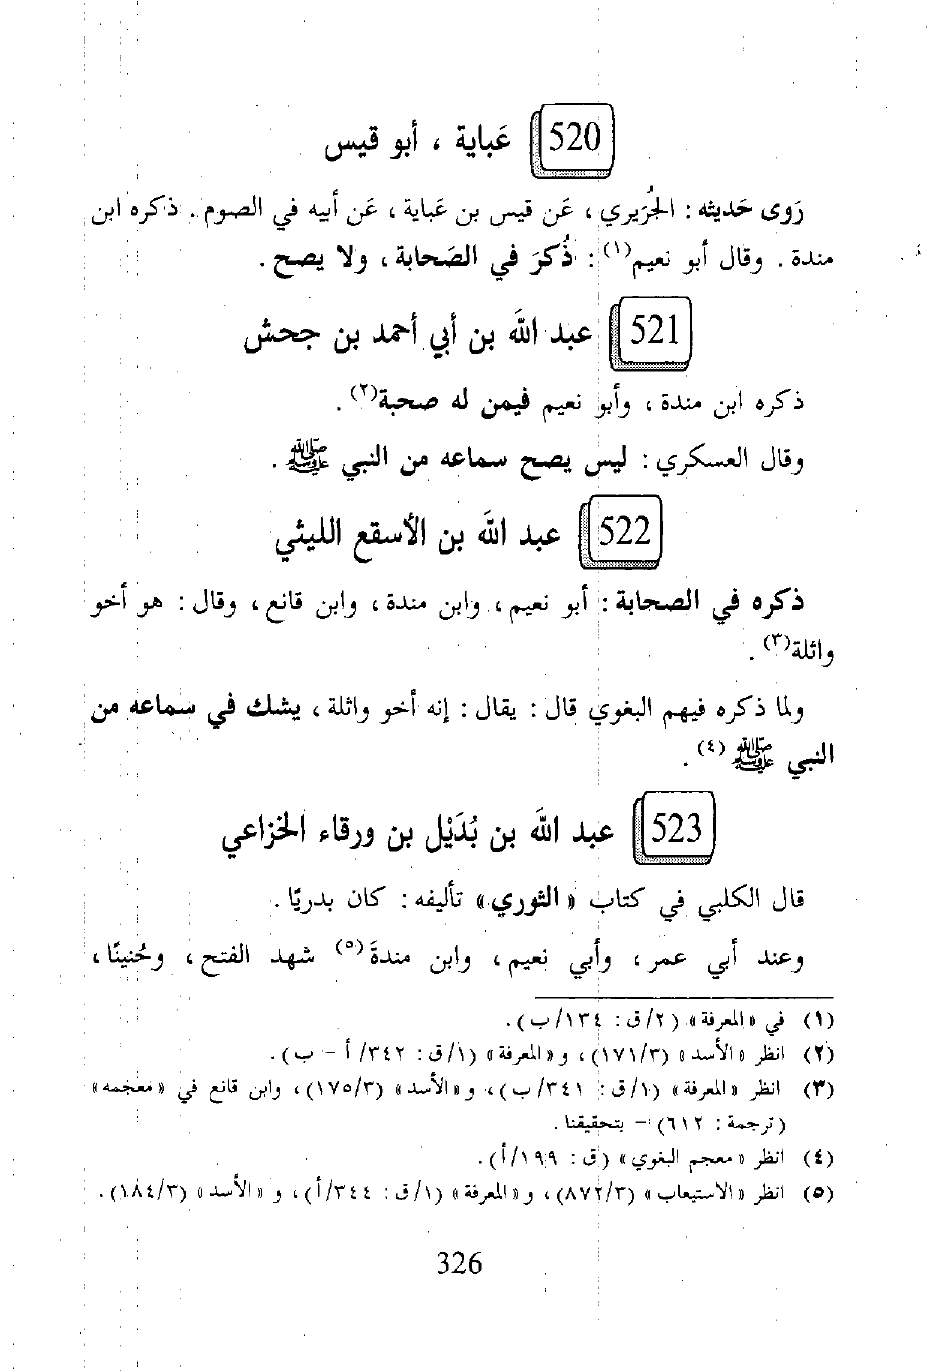 520 عَباية ، أبو قيس
رَوى حَديثه : الجُرَيري ، عَن قيس بن عَباية ، عَن أبيه في الصوم . ذكره ابن
مندة . وقال أبو نعيم(١) : ذُكرَ في الصَحابة ، ولا يصح .
521 عبد اللَّه بن أبي أحمد بن جحش
ذكره ابن مندة ، وأبو نعيم فيمن له صحبة(٢) .
وقال العسكري : ليس يصح سماعه من النبي ﷺ .
522 عبد اللَّه بن الأسقع الليثي
ذكره في الصحابة : أبو نعيم ، وابن مندة ، وابن قانع ، وقال : هو أخو
واثلة(٣) .
ولما ذكره فيهم البغوي قال : يقال : إنه أخو واثلة ، يشك في سماعه من
النبي ﷺ (٤) .
523 عبد اللَّه بن بُدَيْل بن ورقاء الخزاعي
قال الكلبي في كتاب « الثوري » تأليفه : كان بدريًا .
وعند أبي عمر ، وأبي نعيم ، وابن مندةَ(٥) شهد الفتح ، وحُنينًا ،
(١) في « المعرفة » (٢/ق : ١٣٤/ب) .
(٢) انظر « الأسد » (١٧١/٣) ، و« المعرفة » (١/ق : ٣٤٢/ أ - ب) .
(٣) انظر « المعرفة » (١/ق : ٣٤١/ب) ، و« الأسد » (١٧٥/٣) ، وابن قانع في « معجمه »
(ترجمة : ٦١٢) - بتحقيقنا .
(٤) انظر « معجم البغوي » (ق : ١٩٩/أ) .
(٥) انظر « الاستيعاب » (٨٧٢/٣) ، و« المعرفة » (١/ق : ٣٤٤/أ) ، و « الأسد » (١٨٤/٣) .
326